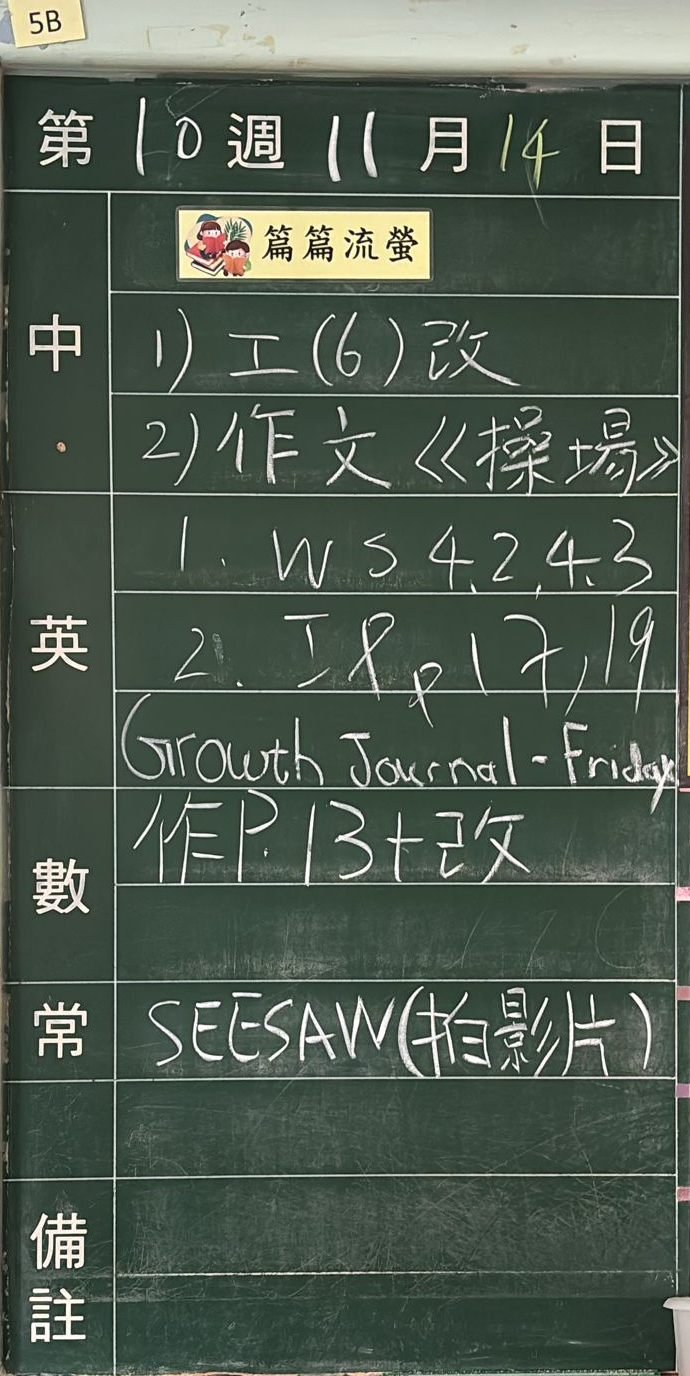 5B
第 10 週 11 月 14 日
篇篇流螢
中
1) 工(6)改
2) 作文《操場》
英
1. WS 4.2, 4.3
2. IP p 17, 19
Growth Journal - Friday
數
作P.13+改
常
SEESAW(拍影片)
備註